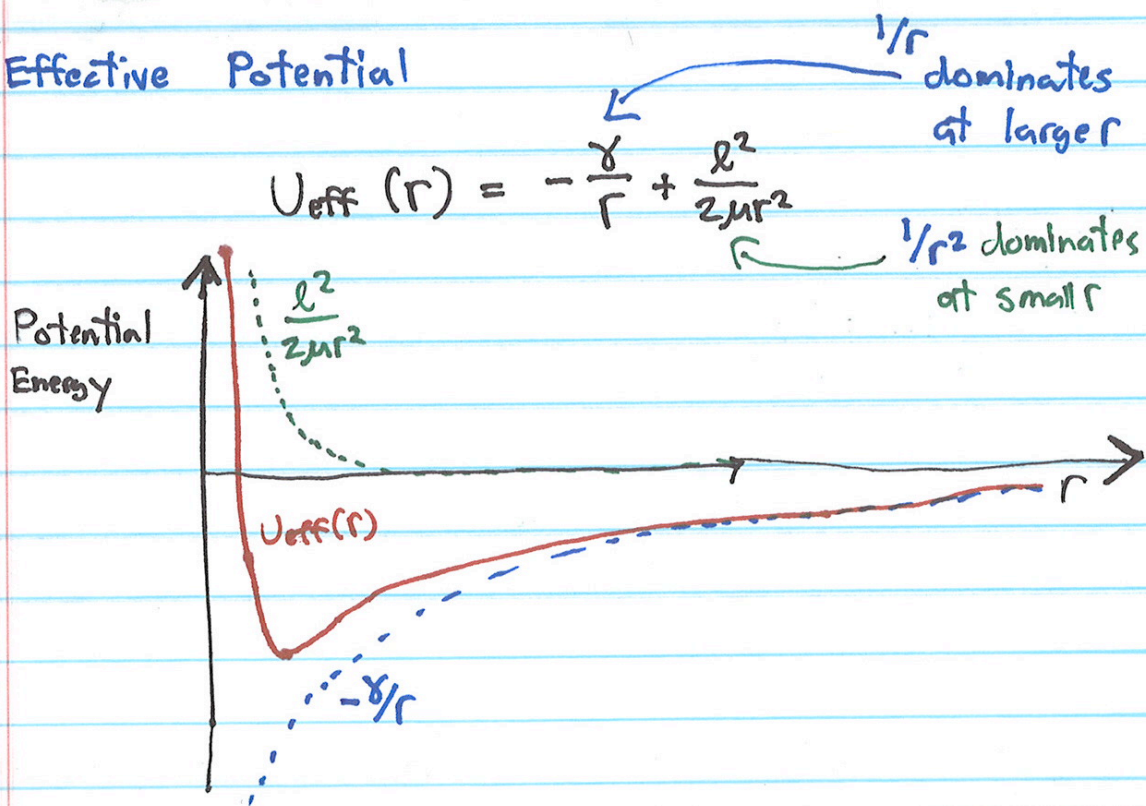 Effective Potential
1/r
dominates
at larger
U_eff (r) = - γ/r + ℓ²/2μr²
1/r² dominates
at small r
Potential
Energy
ℓ²/2μr²
U_eff(r)
r
-γ/r